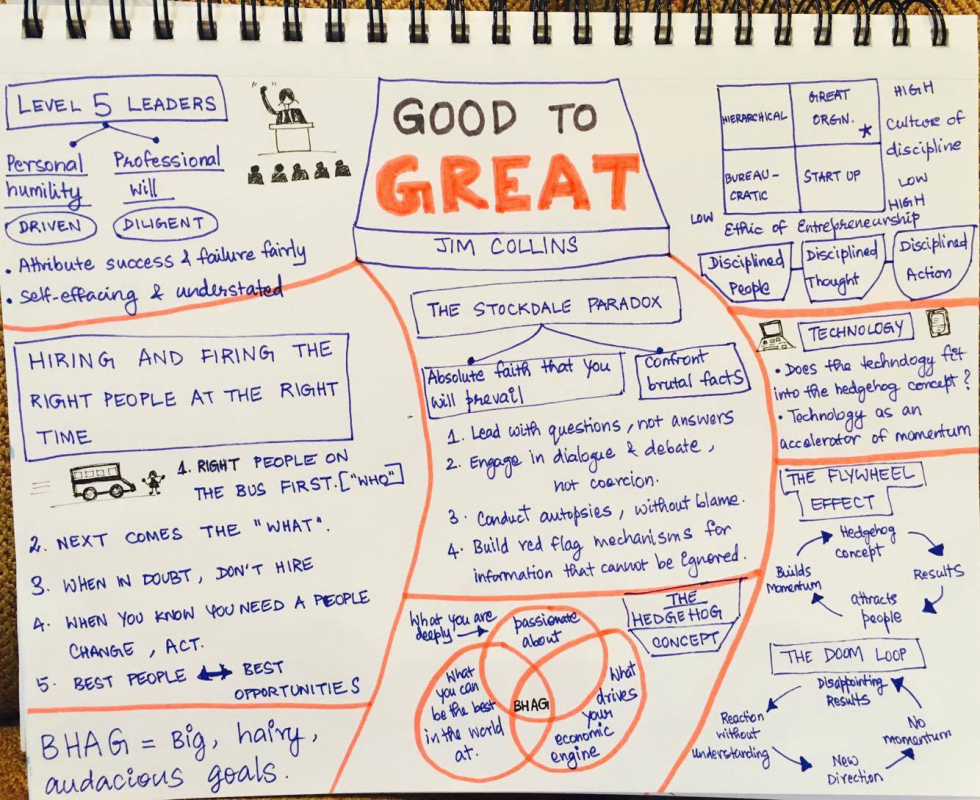 LEVEL 5 LEADERS
Personal
humility
Professional
Will
DRIVEN
DILIGENT
• Attribute success & failure fairly
• Self-effacing & understated
GOOD TO
GREAT
JIM COLLINS
HIERARCHICAL
GREAT
ORGN.
BUREAU-
CRATIC
START UP
HIGH
Culture of
discipline
LOW
HIGH
LOW
Ethic of Entrepreneurship
Disciplined
People
Disciplined
Thought
Disciplined
Action
HIRING AND FIRING THE
RIGHT PEOPLE AT THE RIGHT
TIME
1. RIGHT PEOPLE ON
THE BUS FIRST. ["WHO"]
2. NEXT COMES THE "WHAT".
3. WHEN IN DOUBT, DON'T HIRE
4. WHEN YOU KNOW YOU NEED A PEOPLE
CHANGE, ACT.
5. BEST PEOPLE ↔ BEST
OPPORTUNITIES
BHAG = Big, hairy,
audacious goals.
THE STOCKDALE PARADOX
Absolute faith that you
will prevail
Confront
brutal facts
1. Lead with questions, not answers
2. Engage in dialogue & debate,
not coercion.
3. Conduct autopsies, without blame.
4. Build red flag mechanisms for
information that cannot be ignored.
THE
HEDGEHOG
CONCEPT
What you are
deeply
passionate
about
What
you can
be the best
in the world
at.
BHAG
What
drives
your
economic
engine
TECHNOLOGY
• Does the technology fit
into the hedgehog concept?
• Technology as an
accelerator of momentum
THE FLYWHEEL
EFFECT
Hedgehog
concept
Results
attracts
people
Builds
Momentum
THE DOOM LOOP
Disappointing
Results
Reaction
without
understanding
New
Direction
No
momentum